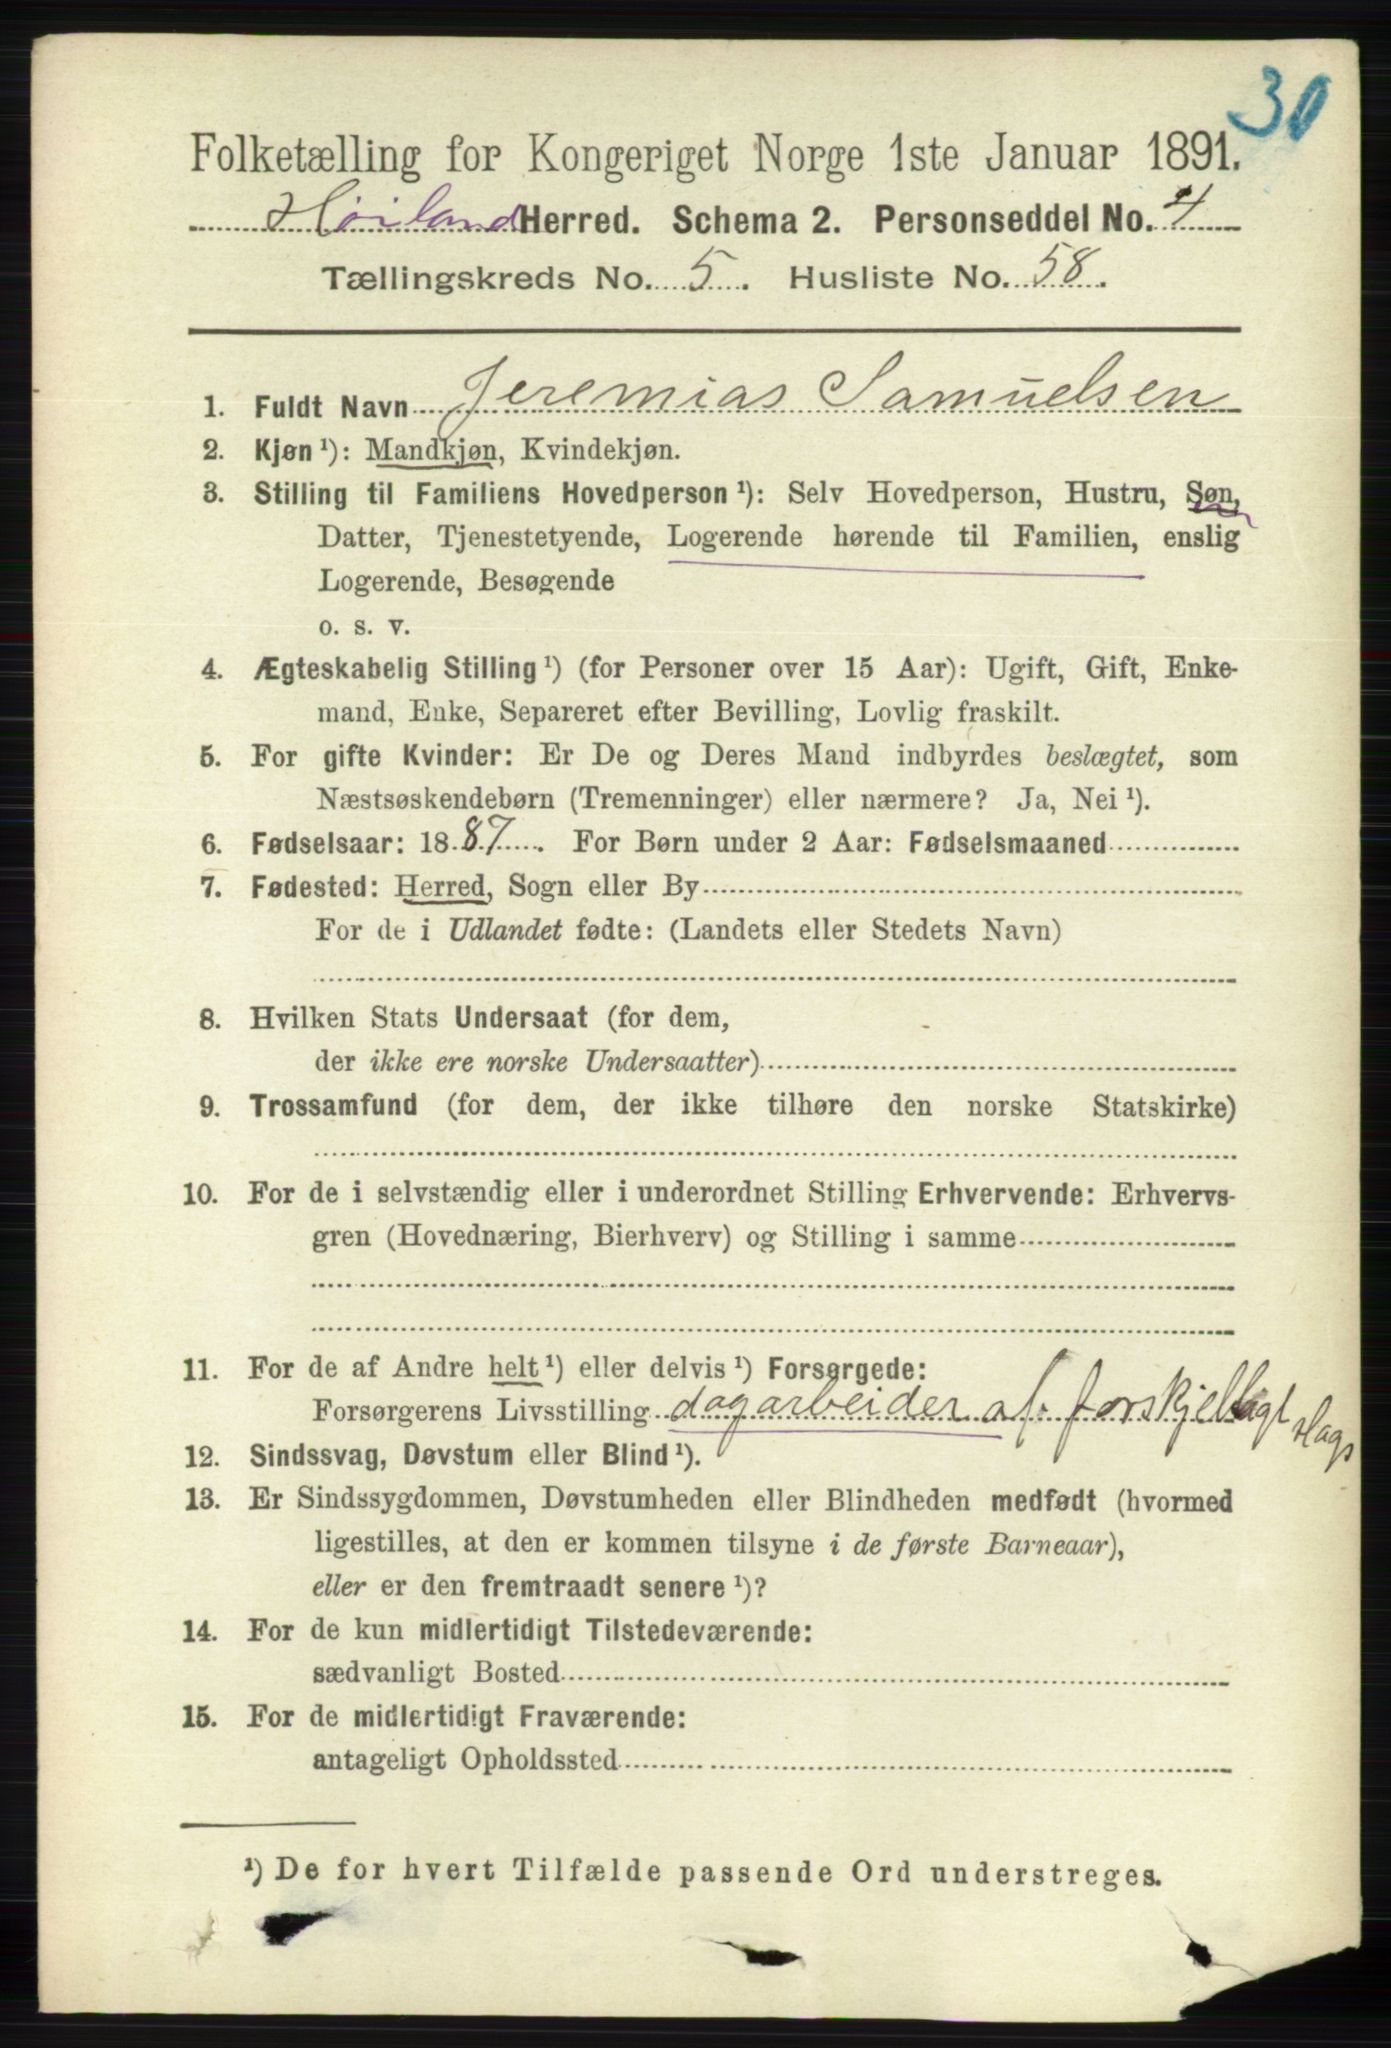 30
Folketælling for Kongeriget Norge 1ste Januar 1891.
Høiland Herred. Schema 2. Personseddel No. 4
Tællingskreds No. 5. Husliste No. 58.
1. Fuldt Navn Jeremias Samuelsen
2. Kjøn ¹): Mandkjøn, Kvindekjøn.
3. Stilling til Familiens Hovedperson ¹): Selv Hovedperson, Hustru, Søn,
Datter, Tjenestetyende, Logerende hørende til Familien, enslig
Logerende, Besøgende
o. s. v.
4. Ægteskabelig Stilling ¹) (for Personer over 15 Aar): Ugift, Gift, Enke-
mand, Enke, Separeret efter Bevilling, Lovlig fraskilt.
5. For gifte Kvinder: Er De og Deres Mand indbyrdes beslægtet, som
Næstsøskendebørn (Tremenninger) eller nærmere? Ja, Nei ¹).
6. Fødselsaar: 1887. For Børn under 2 Aar: Fødselsmaaned
7. Fødested: Herred, Sogn eller By
For de i Udlandet fødte: (Landets eller Stedets Navn)
8. Hvilken Stats Undersaat (for dem,
der ikke ere norske Undersaatter)
9. Trossamfund (for dem, der ikke tilhøre den norske Statskirke)
10. For de i selvstændig eller i underordnet Stilling Erhvervende: Erhvervs-
gren (Hovednæring, Bierhverv) og Stilling i samme
11. For de af Andre helt ¹) eller delvis ¹) Forsørgede:
Forsørgerens Livsstilling dagarbeider af forskjellagt slags
12. Sindssvag, Døvstum eller Blind ¹).
13. Er Sindssygdommen, Døvstumheden eller Blindheden medfødt (hvormed
ligestilles, at den er kommen tilsyne i de første Barneaar),
eller er den fremtraadt senere ¹)?
14. For de kun midlertidigt Tilstedeværende:
sædvanligt Bosted
15. For de midlertidigt Fraværende:
antageligt Opholdssted
¹) De for hvert Tilfælde passende Ord understreges.